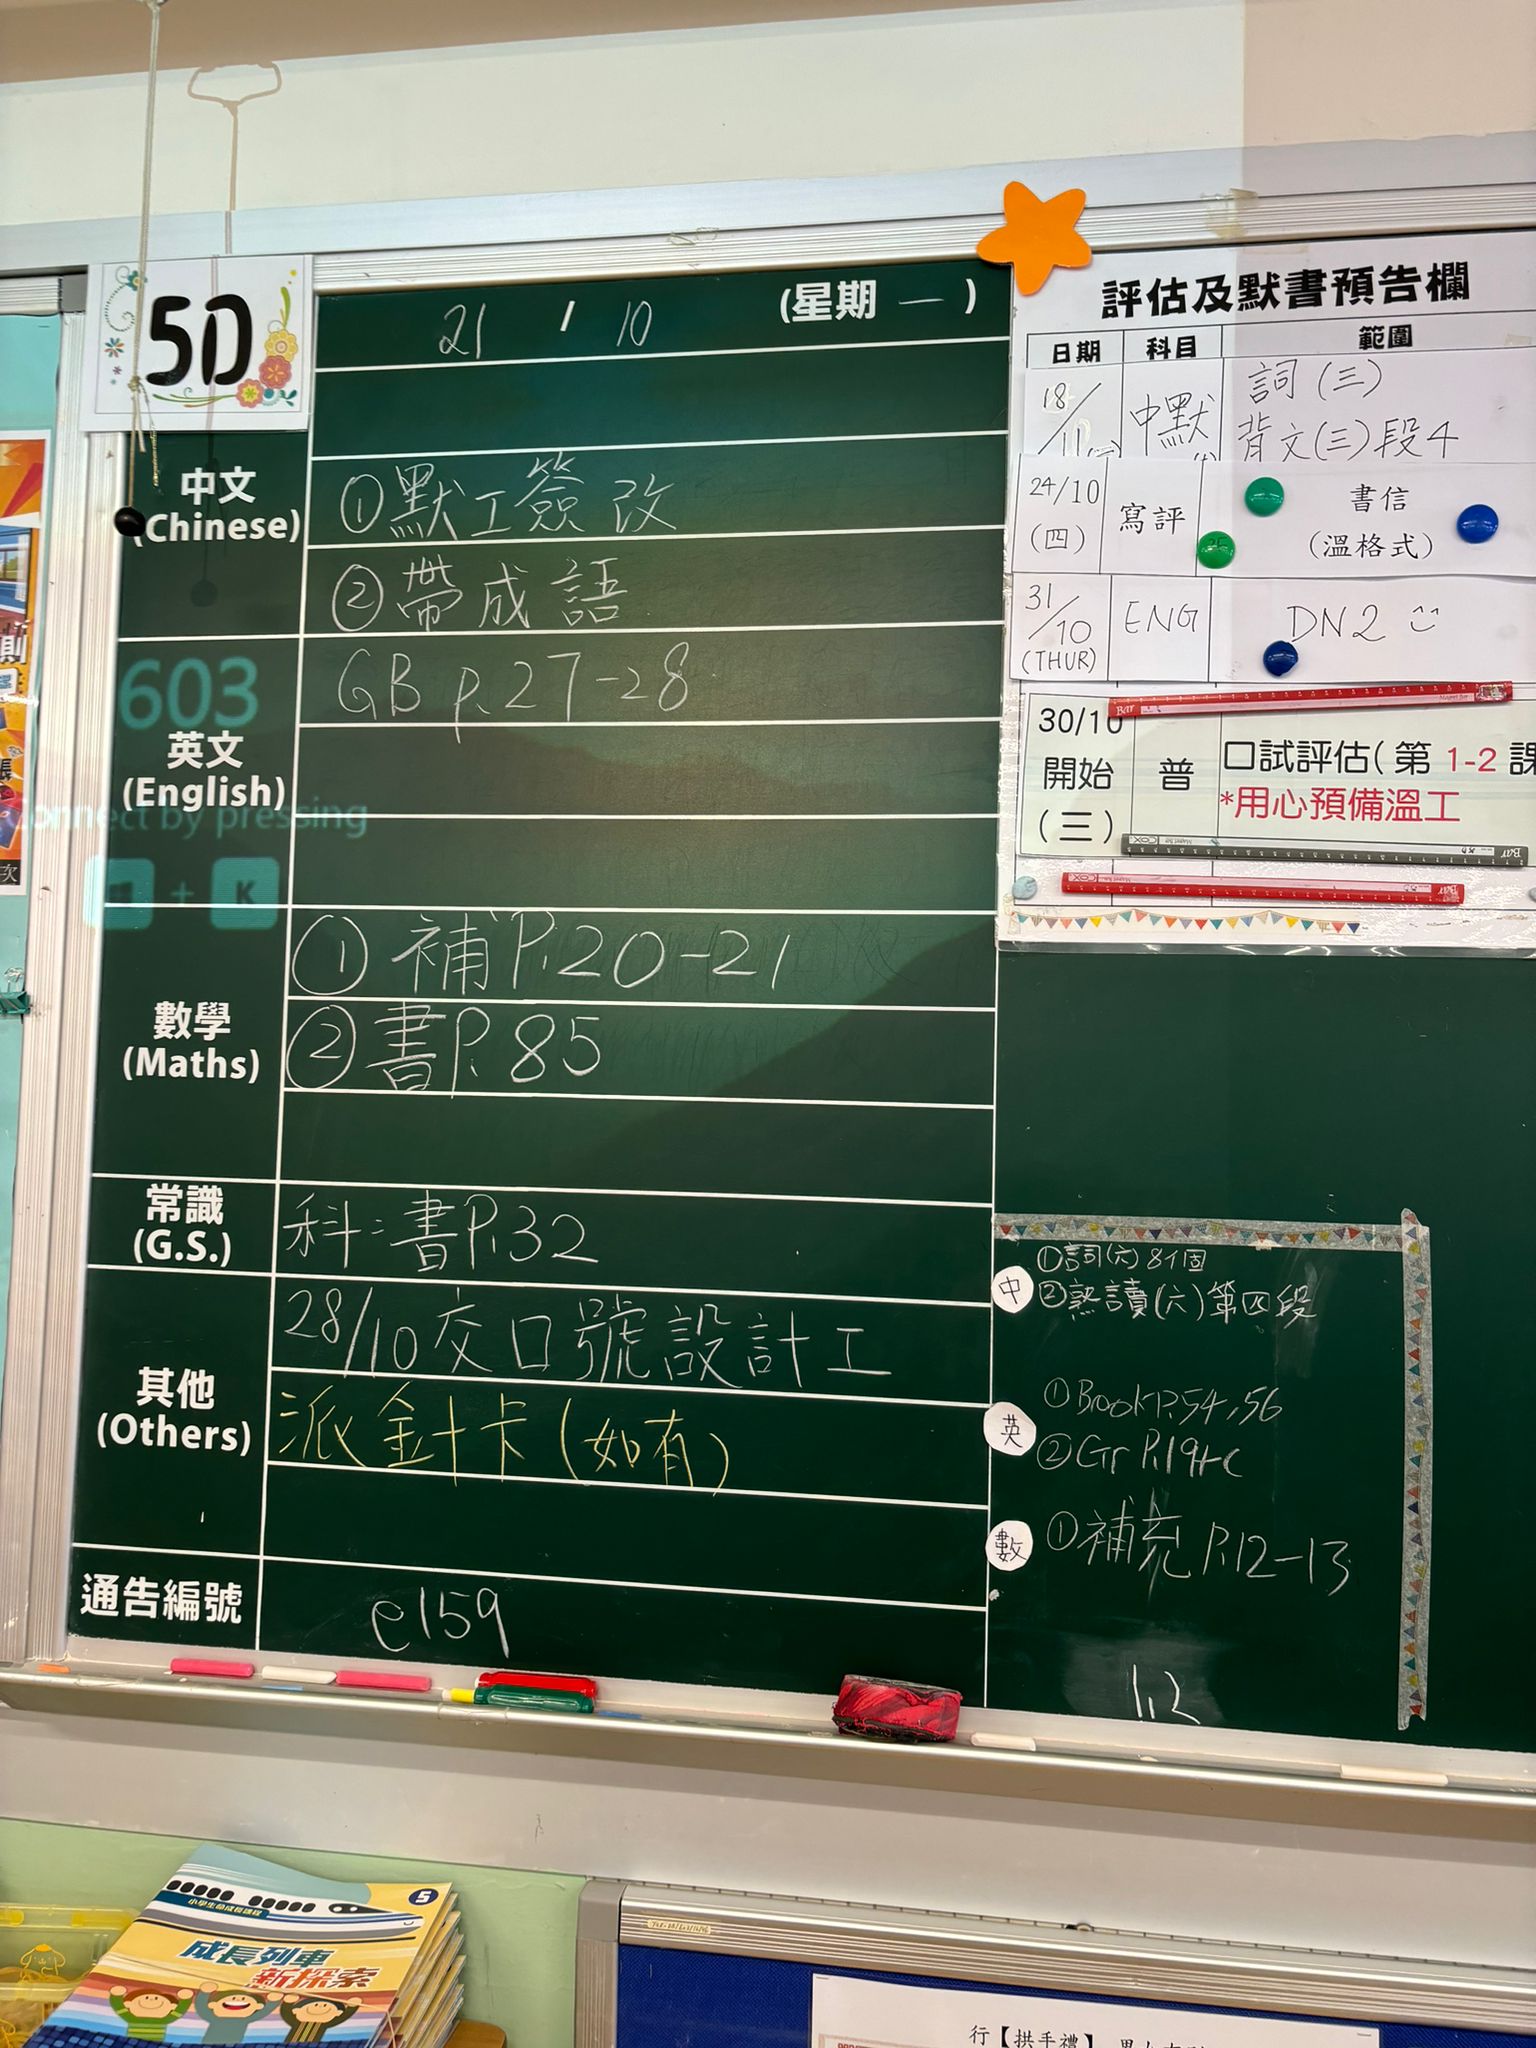 5D
21 / 10 (星期 一 )
中文
(Chinese)
①默工簽改
②帶成語
603
英文
(English)
GB p.27-28
connect by pressing
+ K
數學
(Maths)
①補P.20-21
②書P.85
常識
(G.S.)
科:書P.32
其他
(Others)
28/10交口號設計工
派針卡(如有)
通告編號
e159
評估及默書預告欄
日期 科目 範圍
18/11 中默 詞(三)
背文(三)段4
24/10
(四) 寫評 書信
(溫格式)
31/10
(THUR) ENG DN2
30/10
開始
(三) 普 口試評估(第 1-2 課
*用心預備溫工
中 ①詞(六)8個
②熟讀(六)第四段
英 ①Book P.54,56
②Gr P.19
數 ①補充 P.12-13
1,2
5
小學生命成長課程
成長列車
新探索
行【拱手禮】